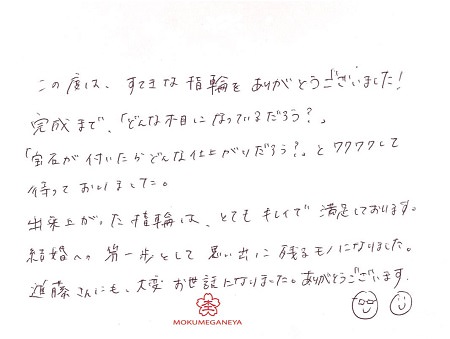 この度は、すてきな指輪をありがとうございました!
完成まで、「どんな木目になっているだろう?」
「宝石が付いたらどんな仕上がりだろう?」とワクワクして
待っておりました。
出来上がった指輪は、とてもキレイで満足しております。
結婚への第一歩として思い出に残るモノになりました。
進藤さんにも、大変お世話になりました。ありがとうございます。
MOKUMEGANEYA